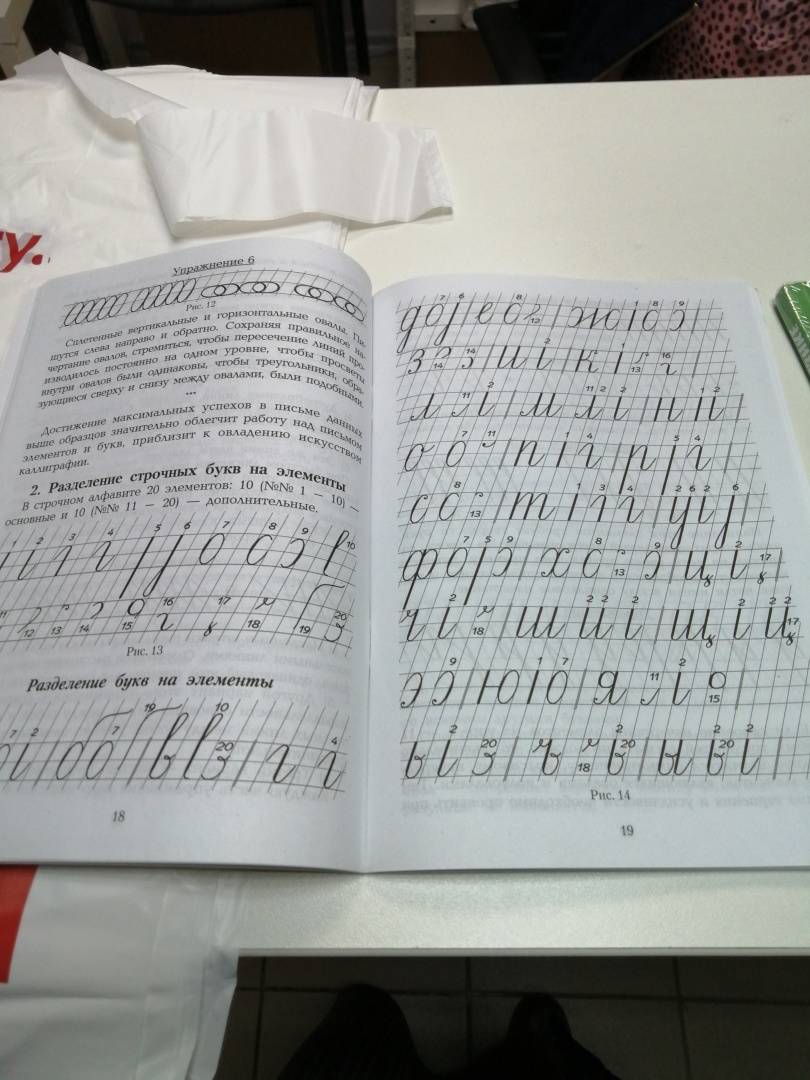 y.
Упражнение 6
Рис. 12
Сплетенные вертикальные и горизонтальные овалы. Пи-
шутся слева направо и обратно. Сохраняя правильное на-
чертание овалов, стремиться, чтобы пересечение линий про-
изводилось постоянно на одном уровне, чтобы просветы
внутри овалов были одинаковы, чтобы треугольники, обра-
зующиеся сверху и снизу между овалами, были подобными.
***
Достижение максимальных успехов в письме данных
выше образцов значительно облегчит работу над письмом
элементов и букв, приблизит к овладению искусством
каллиграфии.
2. Разделение строчных букв на элементы
В строчном алфавите 20 элементов: 10 (№№ 1 — 10) —
основные и 10 (№№ 11 — 20) — дополнительные.
2 3 4 5 6 7 8 9 10
11 12 13 14 15 16 17 18 19 20
Рис. 13
Разделение букв на элементы
7 2 7 19 10 20 4
в г
18
7 6 8 12 1 8 9
д е ж
14 14 2 1 13 16
з и к
11 2 11 2 2 1 2
л м н
7 11 1 4 5 4
о п р
8 13 1 3 4 2 6 2 6
с т у
7 5 9 8 13 9 2 17
ф х ц
2 18 2 2 2 2 2 2 17
ч ш щ
9 1 7 11 2 15
э ю я
2 20 18 2 20 2 20 2
ь ъ ы
Рис. 14
19